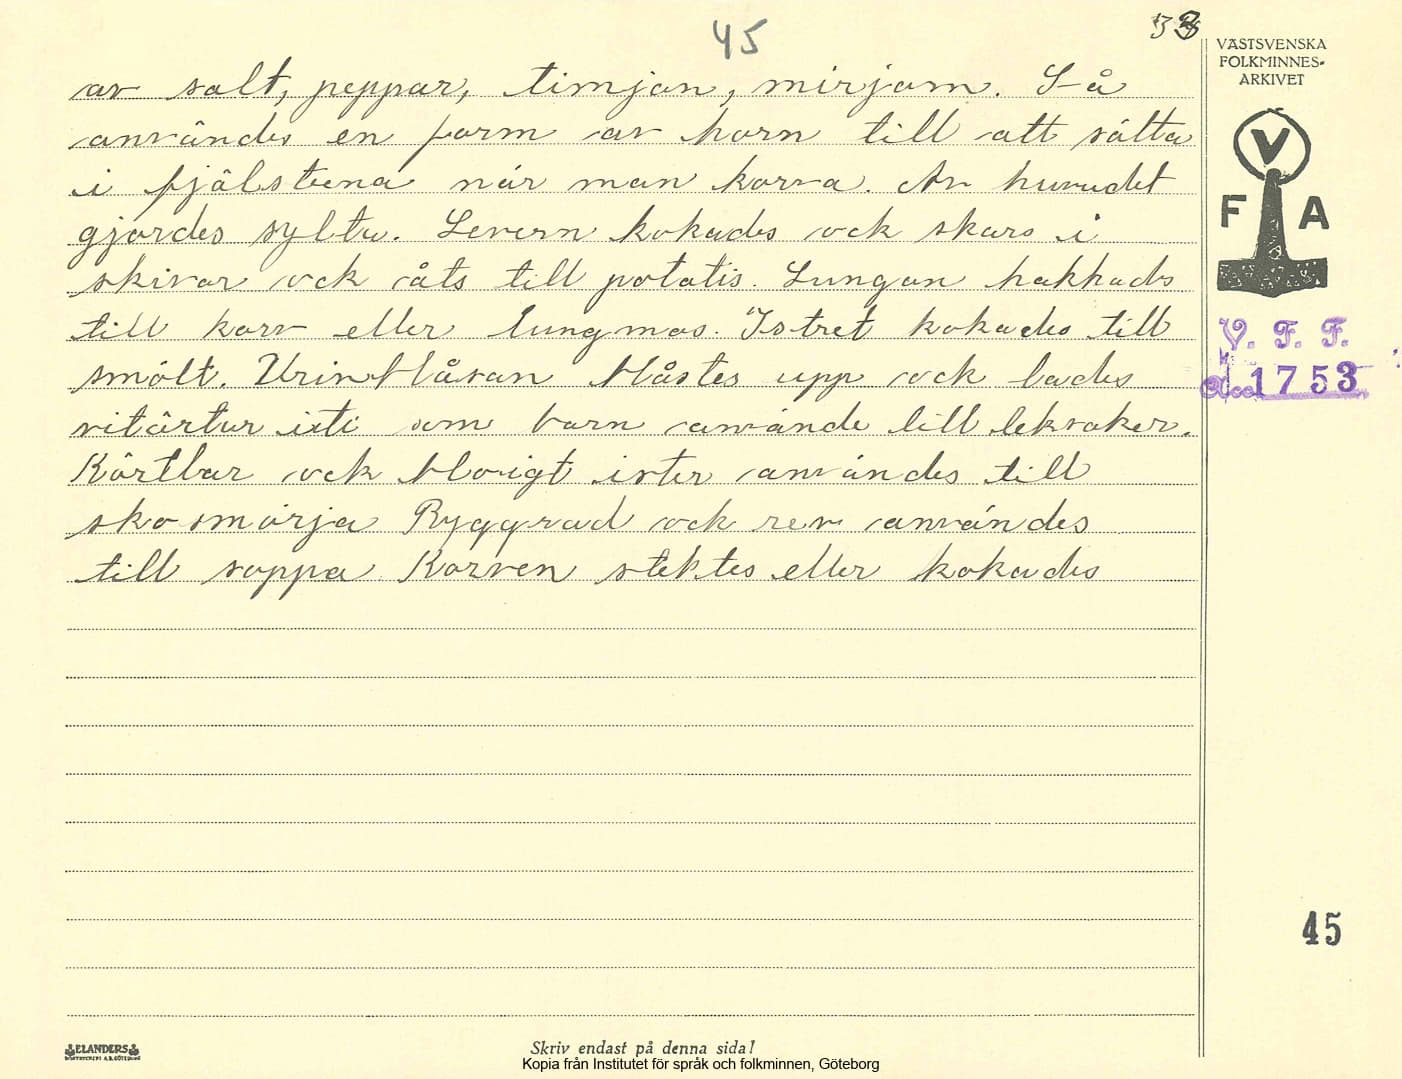 45
33
VÄSTSVENSKA
FOLKMINNES-
ARKIVET
av salt, peppar, timjan, mirjam. Så
användes en form av horn till att sätta
i fjälsterna när man korva. Av huvudet
gjordes sylta. Levern kokades ock skars i
skivor ock åts till potatis. Lungan hakkads
till korv eller lungmos. Istret kokades till
smölt. Urinblåsan blåstes upp ock lades
vitärtur isti som barn använde till leksaker.
Körtlar ock blovigt ister användes till
skosmörja Ryggrad ock rev användes
till soppa Korven stektes eller kokades
V
F A
V. F. F.
1753
45
ELANDERS
Skriv endast på denna sida!
Kopia från Institutet för språk och folkminnen, Göteborg